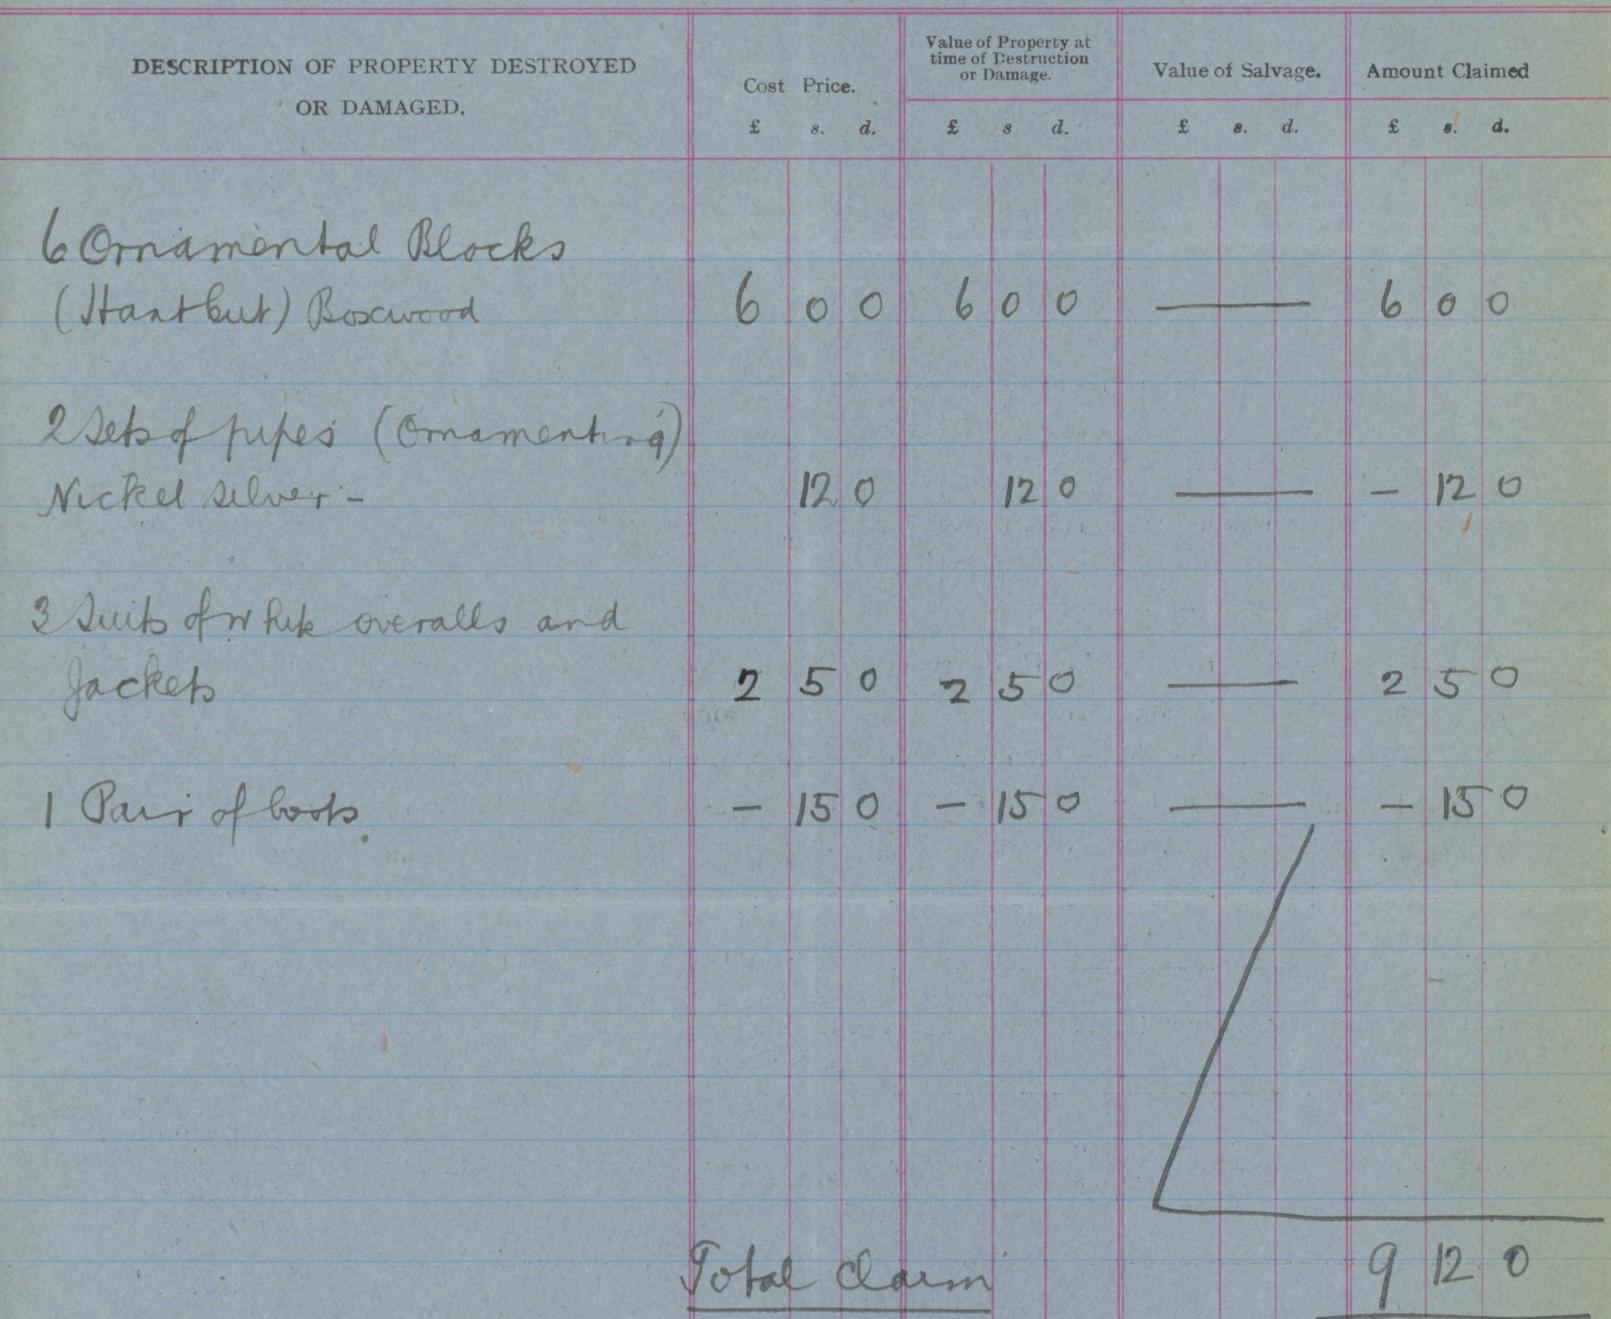 DESCRIPTION OF PROPERTY DESTROYED
OR DAMAGED.
Cost Price.
Value of Property at
time of Destruction
or Damage.
Value of Salvage.
Amount Claimed
£ s. d. £ s d. £ s. d. £ s. d.
6 Ornamental Blocks
(Hart but) Boxwood 6 0 0 6 0 0 — 6 0 0
2 Sets of pipes (Ornamenting)
Nickel silver - 12 0 12 0 — - 12 0
3 Suits of white overalls and
Jackets 2 5 0 2 5 0 — 2 5 0
1 Pair of boots. - 15 0 - 15 0 — - 15 0
Total Claim 9 12 0